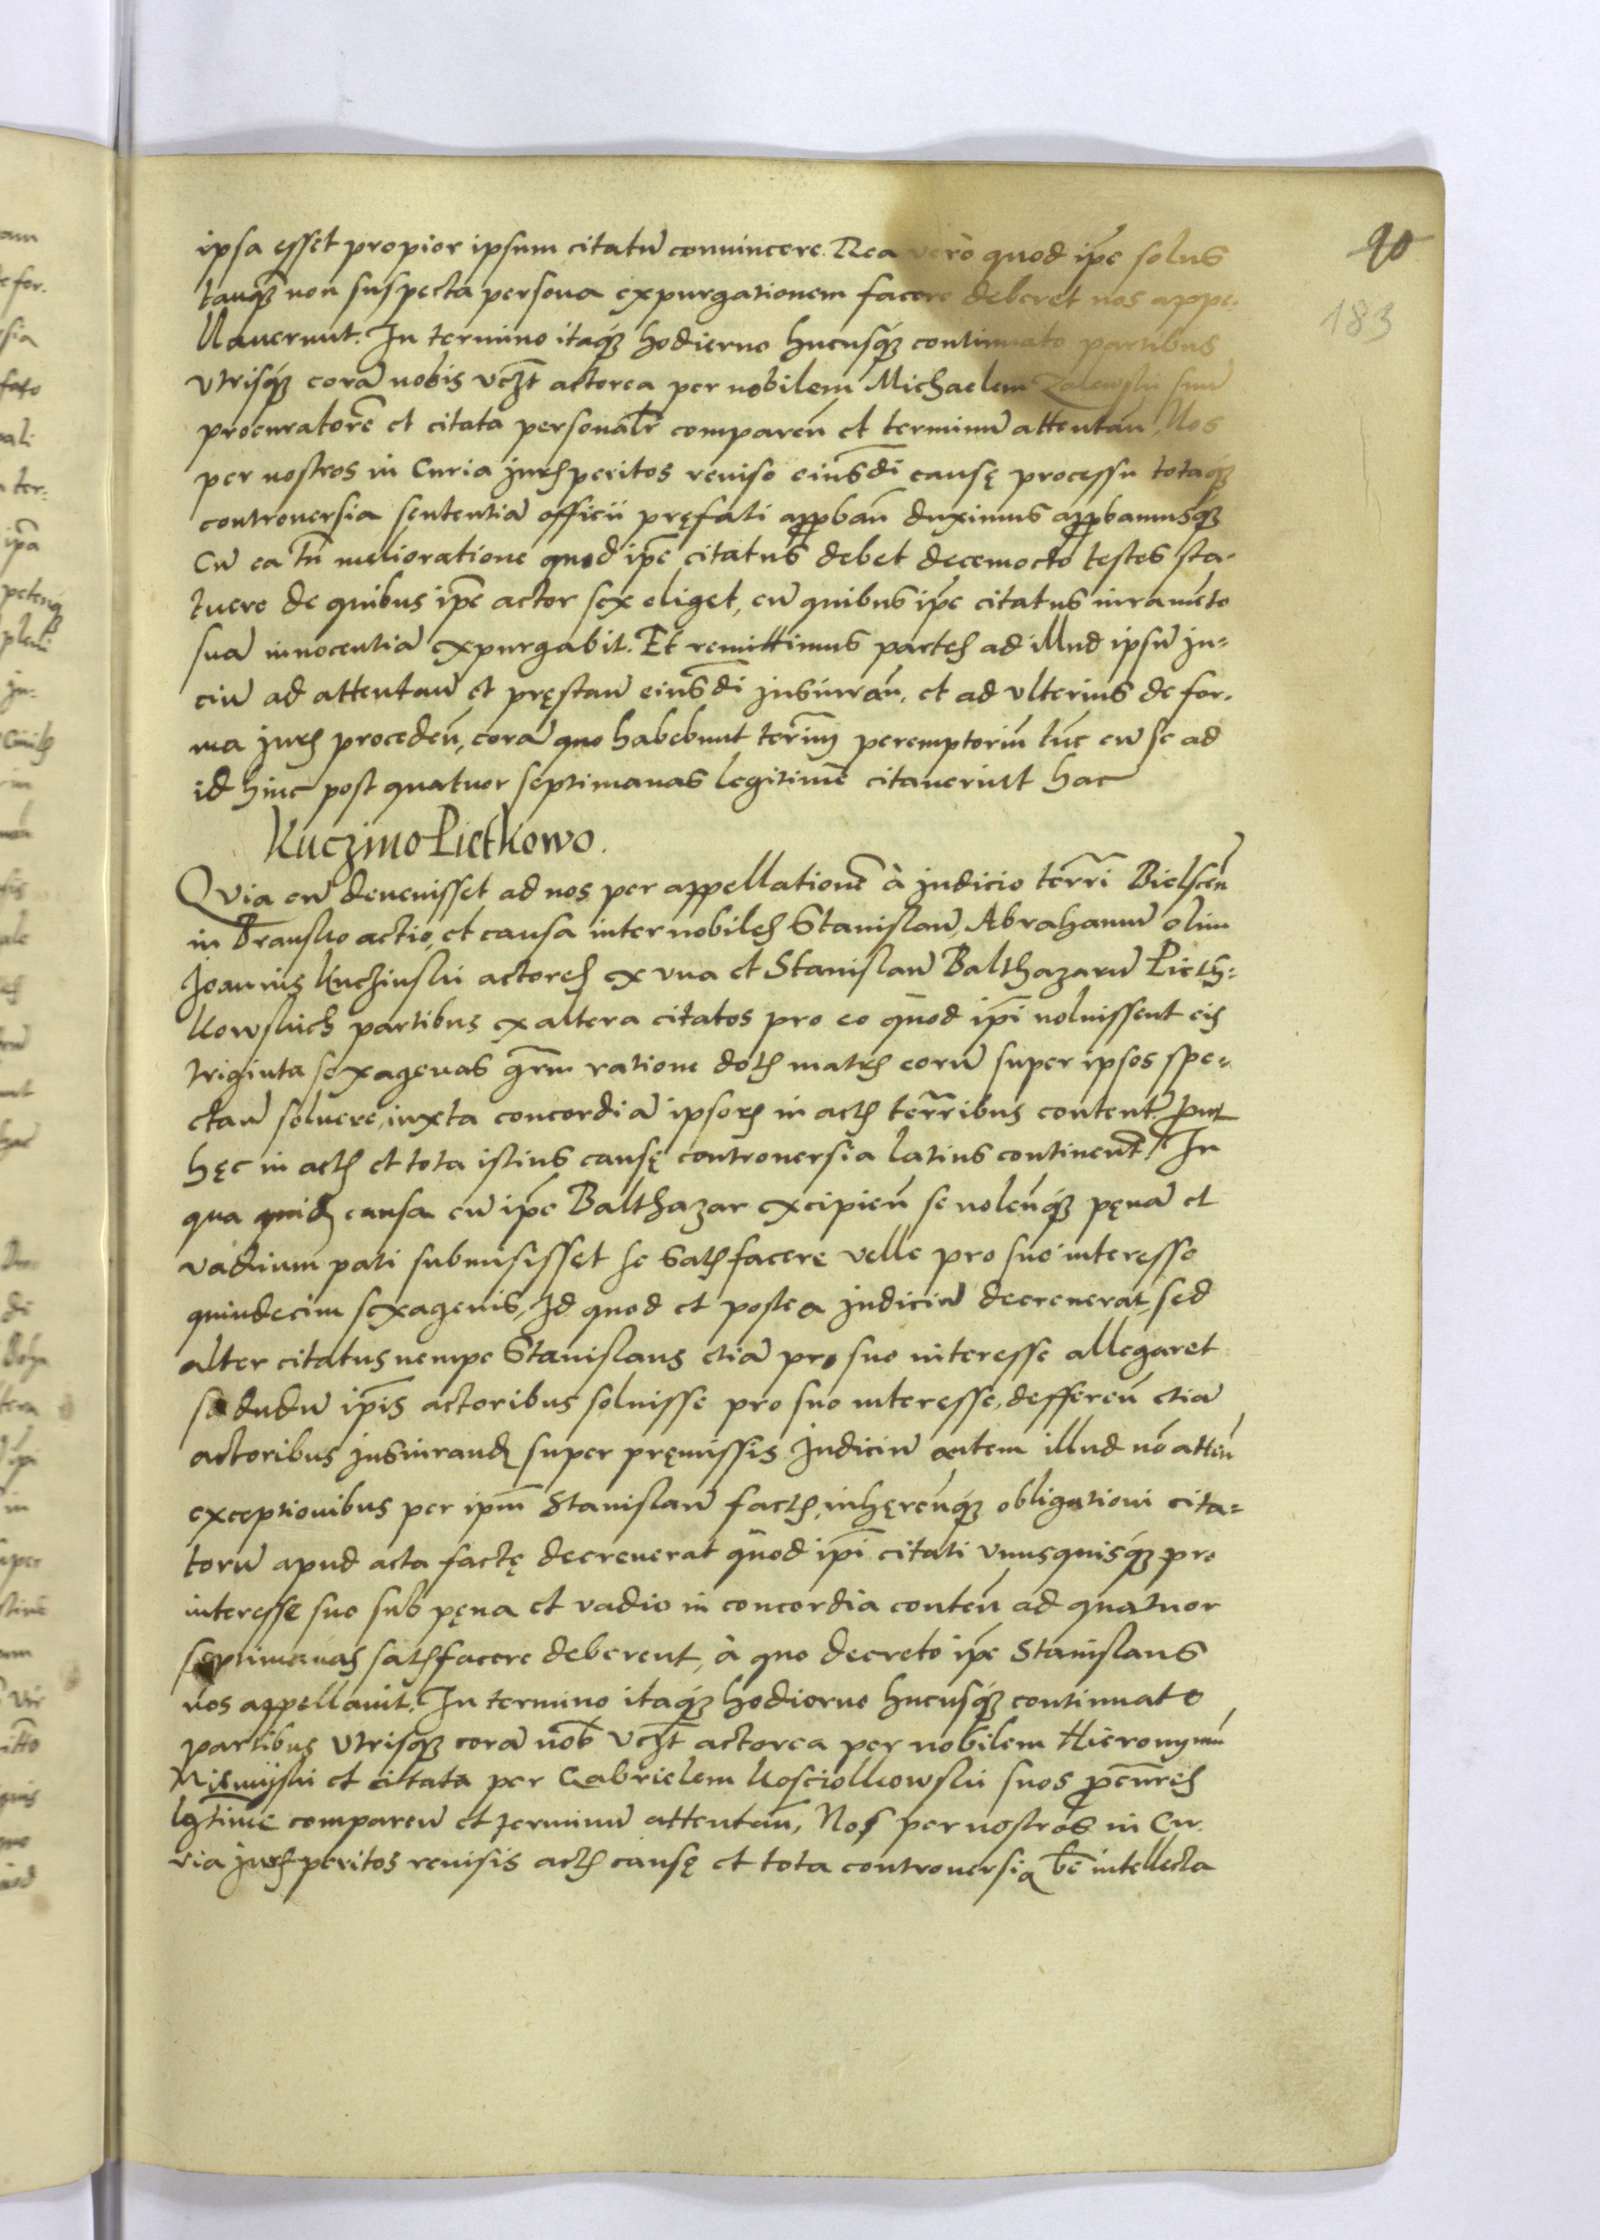 90
183
ipsa esset propior ipsum citatū conuincere. Rea vero quod ip̄e solus
tanq̃ꝫ non suspecta persona expurgationem facere deberet nos appe-
llauerunt. In termino itaq̃ꝫ hodierno hucusq̃ꝫ continuato partibus
vtrisq̃ꝫ corā nobis vcꝫt actorea per nobilem Michaelem Zalewski suū
procuratorē et citata personalr̄ comparen̄ et terminū attentan̄, Nos
per nostros in Curia jurꝭ peritos reuiso eiusd̄i causę processu totaq̃ꝫ
controuersia sententiā officii pręfati app̄ban̄ duximus app̄bamusq̃ꝫ
Cū ea tn̄ melioratione quod ip̄e citatus debet decemocto testes sta-
tuere de quibus ip̄e actor sex eliget, cū quibus ip̄e citatus iuramēto
suā innocentiā expurgabit. Et remittimus partes ad illud ipsū ju-
ciū ad attentan̄ et pręstan̄ eiusd̄i jusiuran̄. et ad vlterius de for-
ma jurꝭ proceden̄, corā quo habebunt termī peremptoriū tūc cū se ad
id hinc post quatuor septimanas legitime citauerint hac
Kuczino Pietkowo.
Quia cū deuenisset ad nos per appellationē à judicio terrī Bielscen̄
in Bransko actio, et causa inter nobiles Stanislaū, Abrahamū olim
Joannis Kuczinski actores ex vna et Stanislaū Balthazarū Pieth-
kowskich partibus ex altera citatos pro eo quod ip̄i noluissent eis
triginta sexagenas gr̄m ratione dotꝭ matrꝭ eorū super ipsos spe-
ctan̄ soluere, iuxta concordiā ipsorꝭ in actꝭ terr̄ibus content̄ prout
hęc in actꝭ et tota istius causę controuersia latius continent̄. In
qua quidꝫ causa cū ip̄e Balthazar excipien̄ se nolen̄q̃ꝫ pęnā et
vadium pati submisisset se satꝭfacere velle pro suo interesse
quindecim sexagenis, Id quod et postea judiciū decreuerat, sed
alter citatus nempe Stanislaus etiā pro suo interesse allegaret
se dudū ip̄is actoribus soluisse pro suo interesse, defferen̄ etiā
actoribus jusiurandꝫ super pręmissis Judiciū autem illud nō atten̄
exceptionibus per ip̄m Stanislaū factꝭ, inhęren̄q̃ꝫ obligationi cita-
torū apud acta factę decreuerat quod ip̄i citati vnusquisq̃ꝫ pro
interesse suo sub pęna et vadio in concordia conten̄ ad quatuor
septimanas satꝭfacere deberent, à quo decreto ip̄e Stanislaus
nos appellauit. In termino itaq̃ꝫ hodierno hucusq̃ꝫ continuato
partibus vtrisq̃ꝫ corā nob̄ vcꝫt actorea per nobilem Hieronymū
et citata per Gabrielem Kosciolkowski suos p̄curꝭ
lgtime comparen̄ et terminū attentan̄, Nos per nostros in Cu-
ria jurꝭ peritos reuisis actꝭ causę et tota controuersia bē intellecta